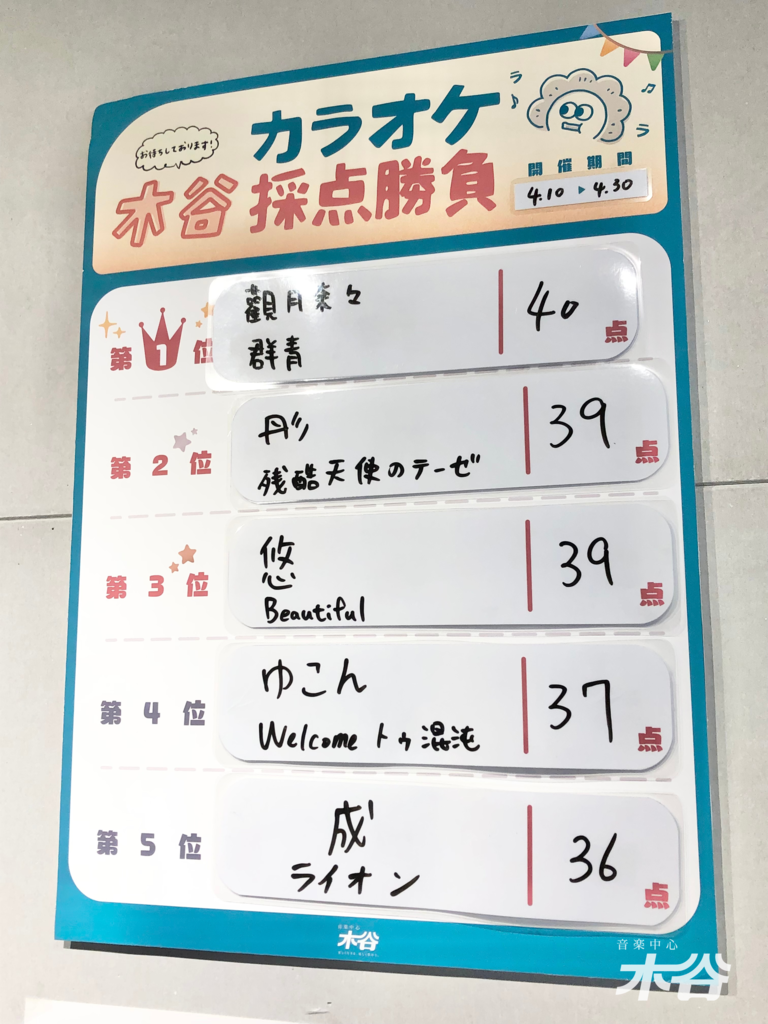 お待ちしております!
カラオケ
木谷 採点勝負
ラ
ラ
開催期間
4.10 ▶ 4.30
第1位
觀月楽々
群青
40点
第2位
彤
残酷天使のテーゼ
39点
第3位
悠
Beautiful
39点
第4位
ゆこん
Welcome トゥ 混沌
37点
第5位
成
ライオン
36点
音楽中心
木谷
音楽中心
木谷